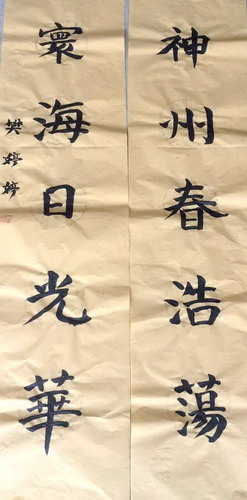 神州春浩蕩
寰海日光華
樊婷婷